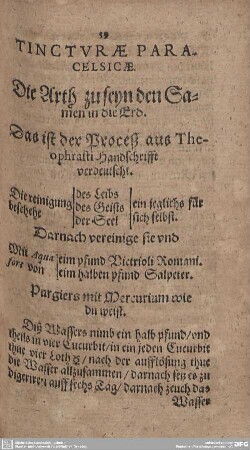 59
TINCTVRÆ PARA-
CELSICÆ.
Die Arth zu seyn den Sa-
men in die Erd.
Das ist der Proceß aus The-
ophrasti Handschrifft
verdeutscht.
Die reinigung beschehe des Leibs des Geists der Seel ein jeglichs für sich selbst.
Darnach vereinige sie vnd
Mit Aqua fort von eim pfund Victrioli Romani. eim halben pfund Salpeter.
Purgiers mit Mercurium wie
du weist.
Diß Wassers nimb ein halb pfund/vnd
theils in vier Cucurbit/in ein jeden Cucurbit
thue vier Loth /nach der aufflösung thue
die Wasser allzusammen/darnach setz es zu
digerirn auff sechs Tag/darnach zeuch das
Wasser